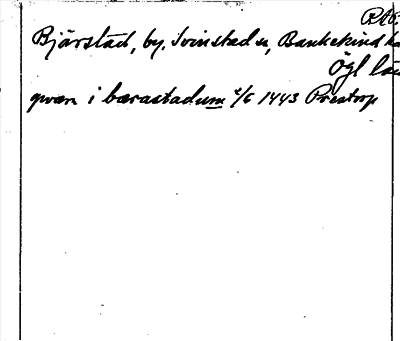 RAp.
Bjärstad, by, Svinstad sn, Bankekind
Ögl
qvarn i bærastadum 2/6 1443 Prestorp